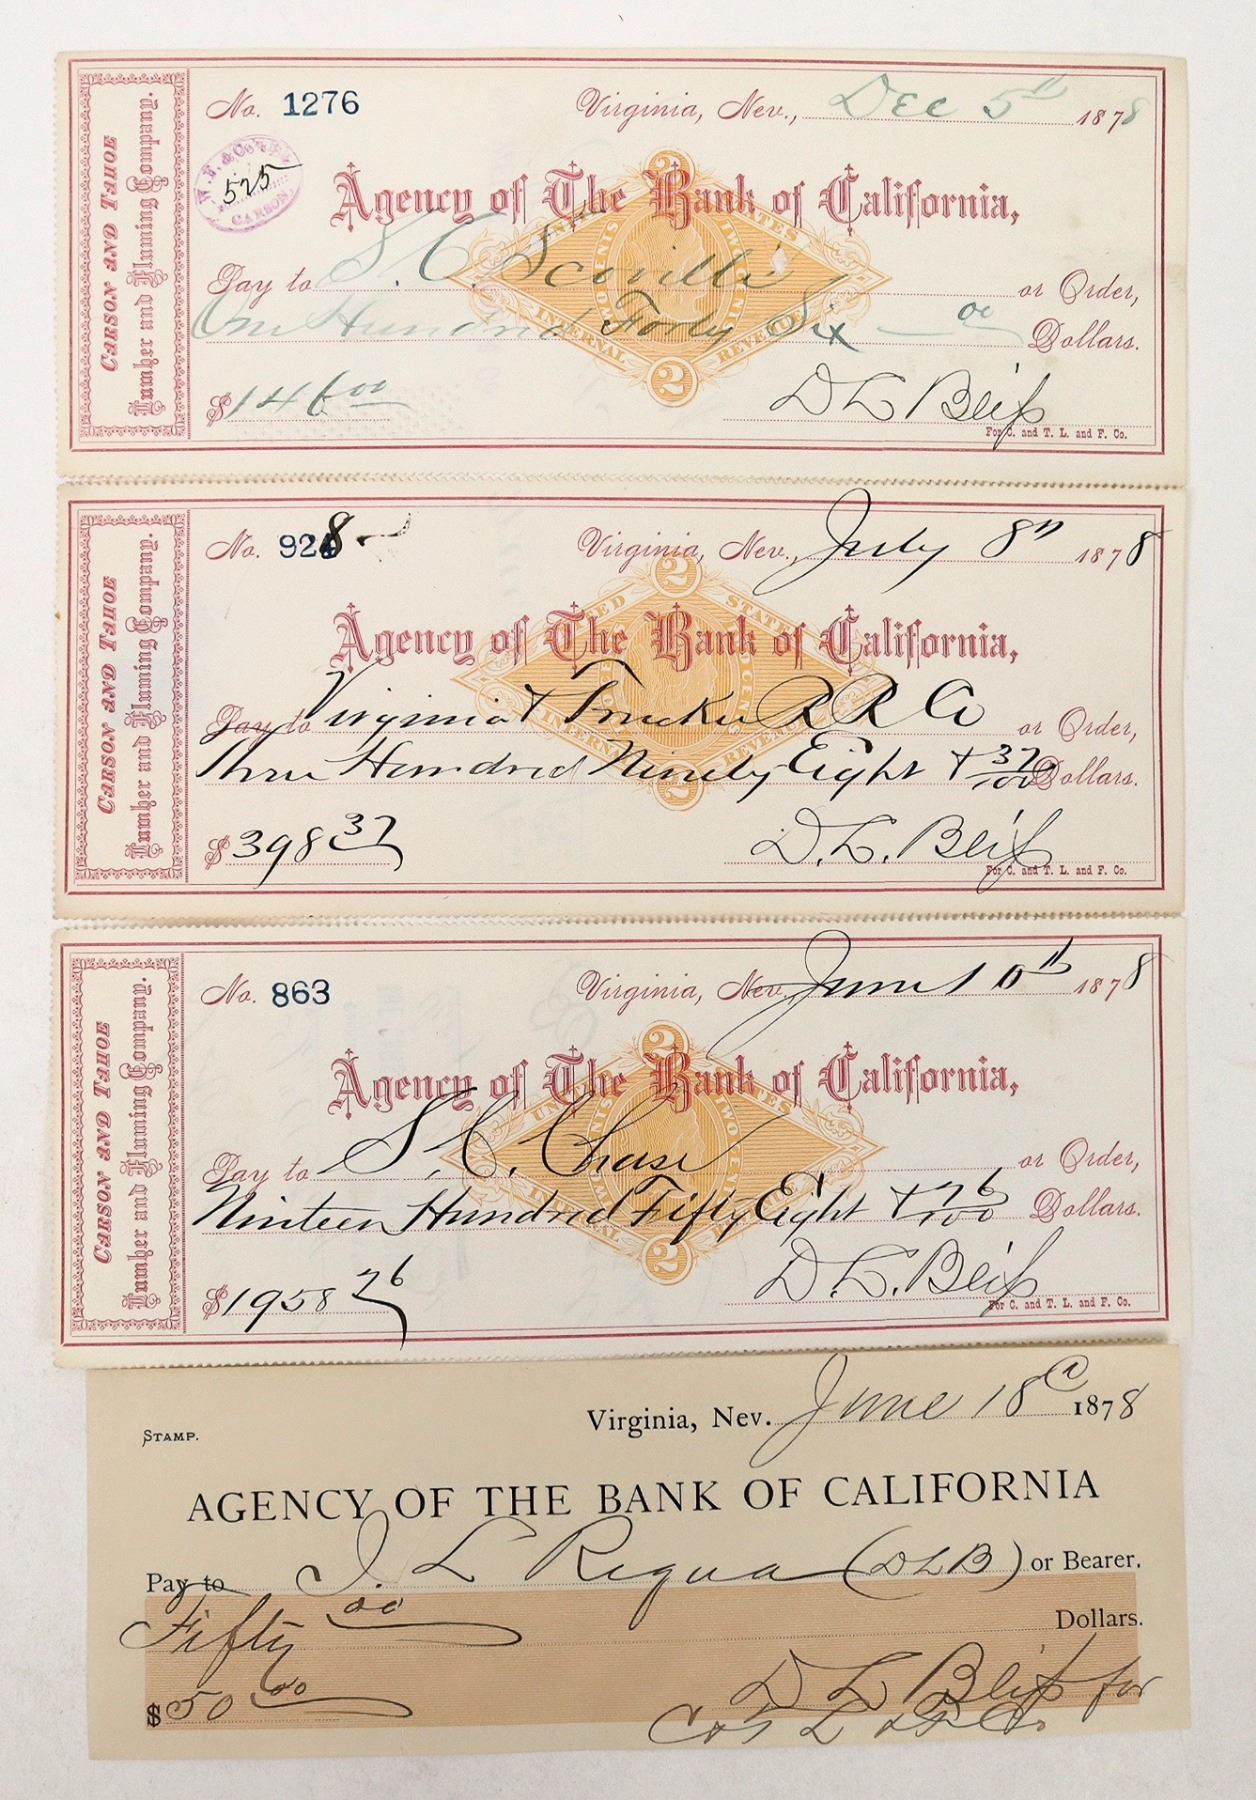 CARSON AND TAHOE
Lumber and Fluming Company.
No. 1276
Virginia, Nev., Dec 5th 1878
W. F. & CO'S EX.
525
CARSON.
Agency of The Bank of California,
UNITED STATES
TWO CENTS
INTERNAL REVENUE
2
Pay to S. C. Scoville or Order,
One Hundred Forty Six — 00 Dollars.
$146 00
D L Bliss
For C. and T. L. and F. Co.
CARSON AND TAHOE
Lumber and Fluming Company.
No. 928
Virginia, Nev., July 8th 1878
2
Agency of The Bank of California,
UNITED STATES
INTERNAL REVENUE
2
Pay to Virginia & Truckee R R Co or Order,
Three Hundred Ninety Eight & 37/100 Dollars.
$398 37
D. L. Bliss
For C. and T. L. and F. Co.
CARSON AND TAHOE
Lumber and Fluming Company.
No. 863
Virginia, Nev., June 10th 1878
2
Agency of The Bank of California,
UNITED STATES
TWO CENTS
INTERNAL
Pay to S. C. Chase or Order,
Nineteen Hundred Fifty Eight & 76/100 Dollars.
2
$1958 76
D. L. Bliss
For C. and T. L. and F. Co.
STAMP.
Virginia, Nev. June 18 1878
AGENCY OF THE BANK OF CALIFORNIA
Pay to I. L Requa (DLB) or Bearer.
Fifty 00 Dollars.
$50 00
D L Bliss for
C & T L & F Co.